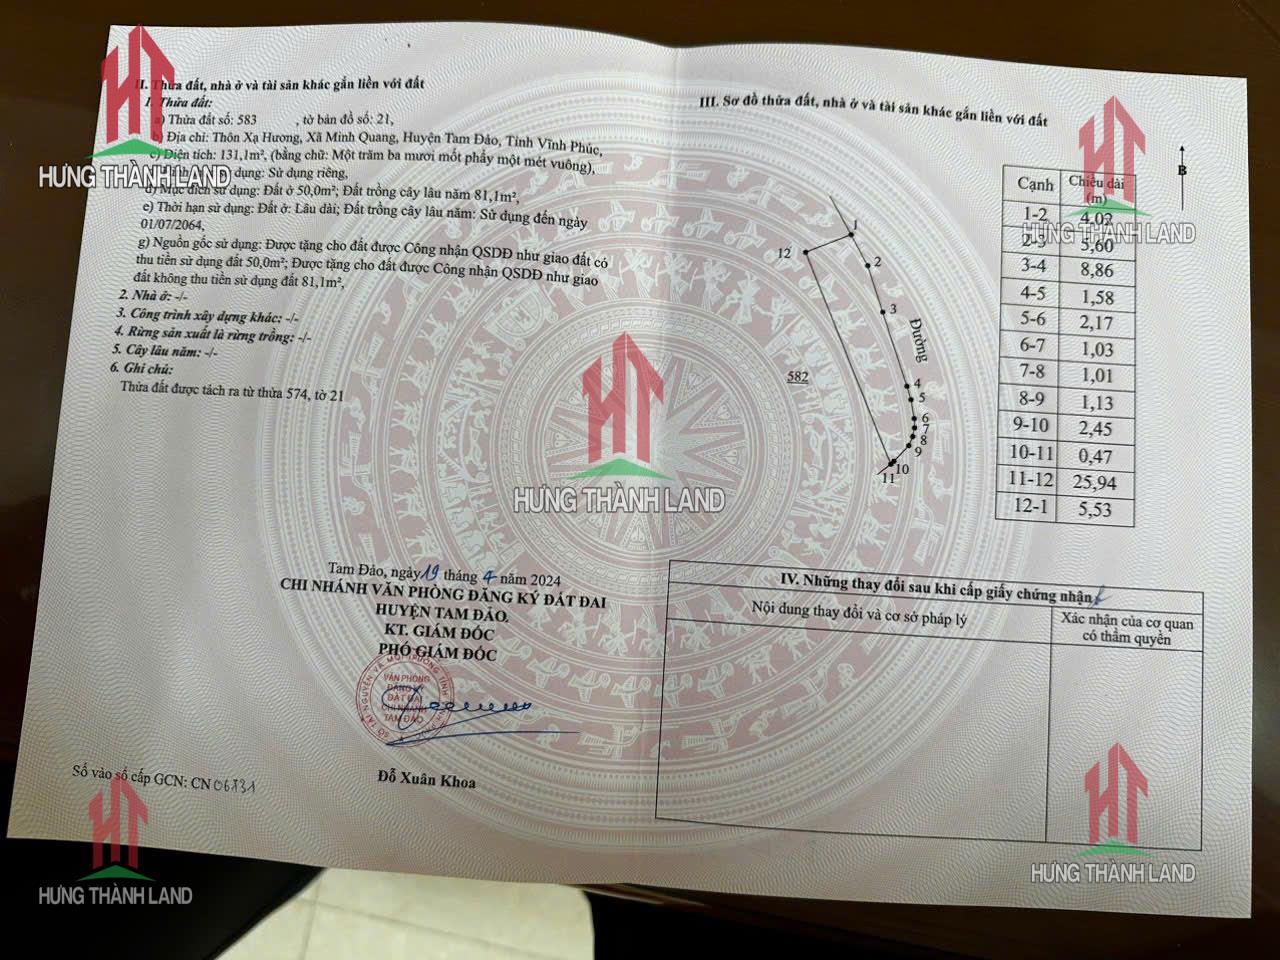 II. Thửa đất, nhà ở và tài sản khác gắn liền với đất
1. Thửa đất:
a) Thửa đất số: 583 , tờ bản đồ số: 21,
b) Địa chỉ: Thôn Xạ Hương, Xã Minh Quang, Huyện Tam Đảo, Tỉnh Vĩnh Phúc,
c) Diện tích: 131,1m², (bằng chữ: Một trăm ba mươi mốt phẩy một mét vuông),
dụng: Sử dụng riêng,
đ) Mục đích sử dụng: Đất ở 50,0m²; Đất trồng cây lâu năm 81,1m²,
e) Thời hạn sử dụng: Đất ở: Lâu dài; Đất trồng cây lâu năm: Sử dụng đến ngày
01/07/2064,
g) Nguồn gốc sử dụng: Được tặng cho đất được Công nhận QSDĐ như giao đất có
thu tiền sử dụng đất 50,0m²; Được tặng cho đất được Công nhận QSDĐ như giao
đất không thu tiền sử dụng đất 81,1m²,
2. Nhà ở: -/-
3. Công trình xây dựng khác: -/-
4. Rừng sản xuất là rừng trồng: -/-
5. Cây lâu năm: -/-
6. Ghi chú:
Thửa đất được tách ra từ thửa 574, tờ 21
Tam Đảo, ngày 19 tháng 4 năm 2024
CHI NHÁNH VĂN PHÒNG ĐĂNG KÝ ĐẤT ĐAI
HUYỆN TAM ĐẢO
KT. GIÁM ĐỐC
PHÓ GIÁM ĐỐC
VĂN PHÒNG
ĐĂNG KÝ
ĐẤT ĐAI
CHI NHÁNH
TAM ĐẢO
Đỗ Xuân Khoa
Số vào sổ cấp GCN: CN
III. Sơ đồ thửa đất, nhà ở và tài sản khác gắn liền với đất
B
12
1
2
3
Đường
582
4
5
6
7
8
9
10
11
Cạnh Chiều dài (m)
1-2 4,02
2-3 5,60
3-4 8,86
4-5 1,58
5-6 2,17
6-7 1,03
7-8 1,01
8-9 1,13
9-10 2,45
10-11 0,47
11-12 25,94
12-1 5,53
IV. Những thay đổi sau khi cấp giấy chứng nhận
Nội dung thay đổi và cơ sở pháp lý
Xác nhận của cơ quan
có thẩm quyền
HƯNG THÀNH LAND
HƯNG THÀNH LAND
HƯNG THÀNH LAND
HƯNG THÀNH LAND
HƯNG THÀNH LAND